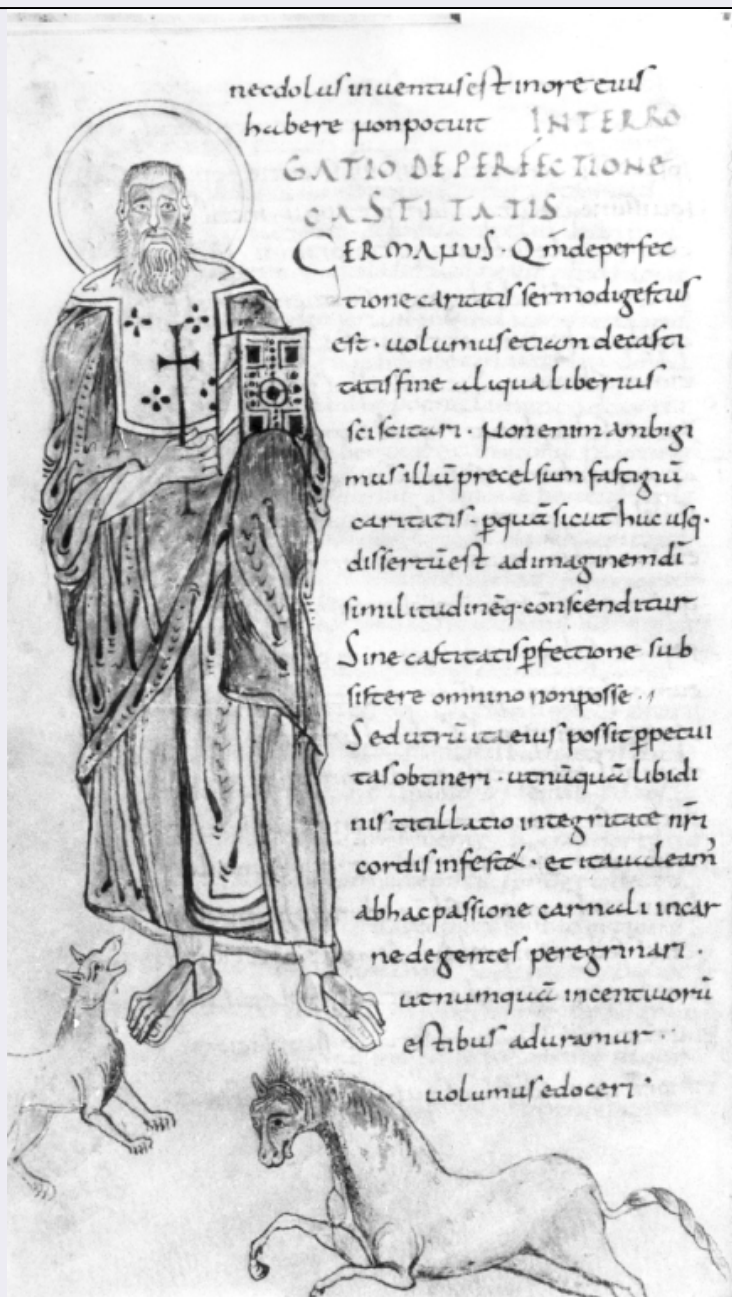 necdolus inuentus est inore eius
habere nonpotuit INTERRO
GATIO DE PERFECTIONE
CASTITATIS
GERMANUS · Qm̄deperfec
tione caritatis sermodigestus
est · uolumus etiam decasti
tatis fine aliqua liberius
sciscitari · Non enim ambigi
mus illū precelsum fastigiū
caritatis · ꝑquā sicut huc usq·
dissertū est adimaginem dī
similitudinēq· conscenditur
Sine castitatis ꝑfectione sub
sistere omnino nonposse ·,
Sed utrū ita eius possit ꝑpetui
tas obtineri · utnūquā libidi
nis titillatio integritatē nr̄i
cordis infest& · et ita
abhac passione carnali incar
ne degentes peregrinari ·
utnumquā incentiuorū
estibus aduramur ·
uolumus edoceri ·